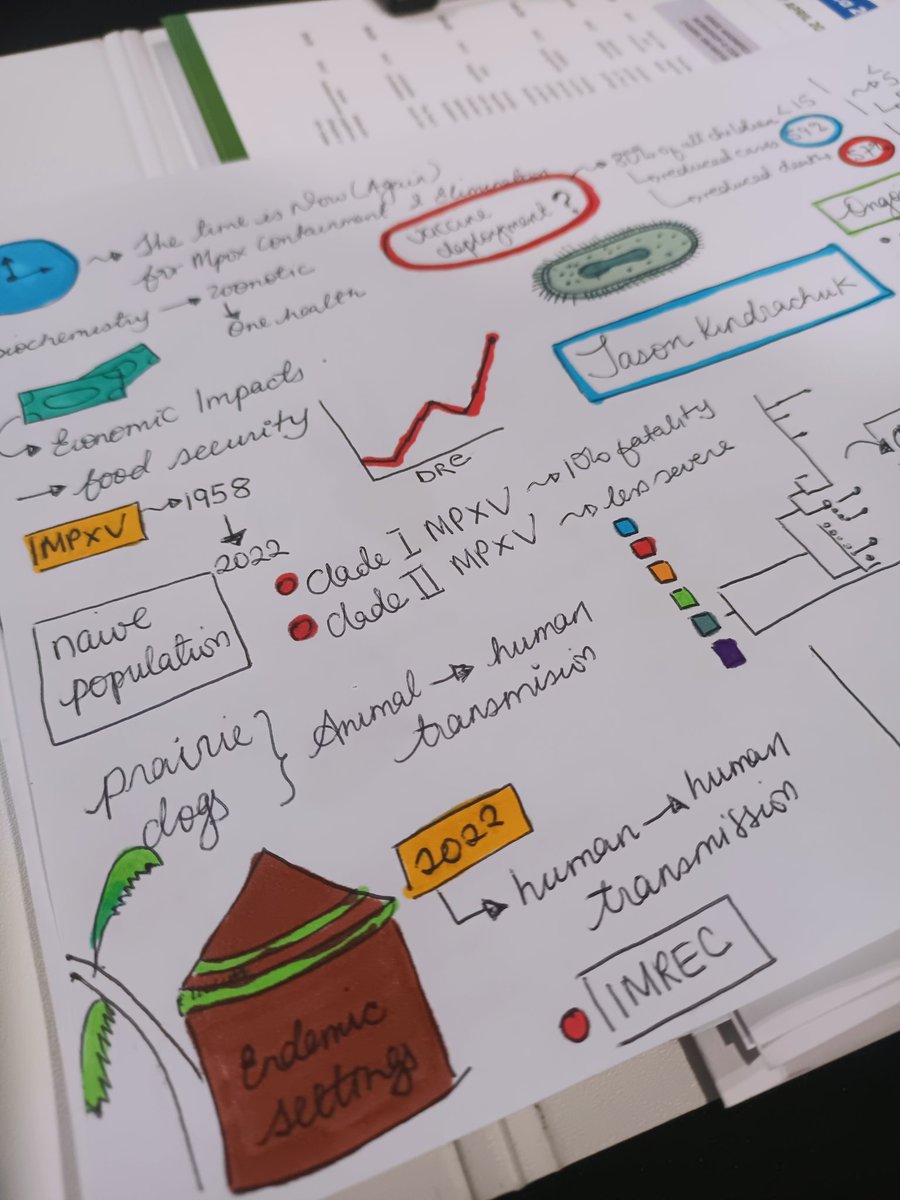 APRIL 20
The time is Now (Again)
for Mpox Containment & Elimination
vaccine
deployment?
80% of all children < 15
reduced cases
reduced deaths
Biochemistry → zoonotic
One health
Jason Kindrachuk
Economic Impacts
food security
DRC
MPXV
1958
2022
Clade I MPXV 10% fatality
Clade II MPXV less severe
naive
population
prairie
dogs
Animal → human
transmision
2022
human → human
transmission
IMREC
Endemic
settings